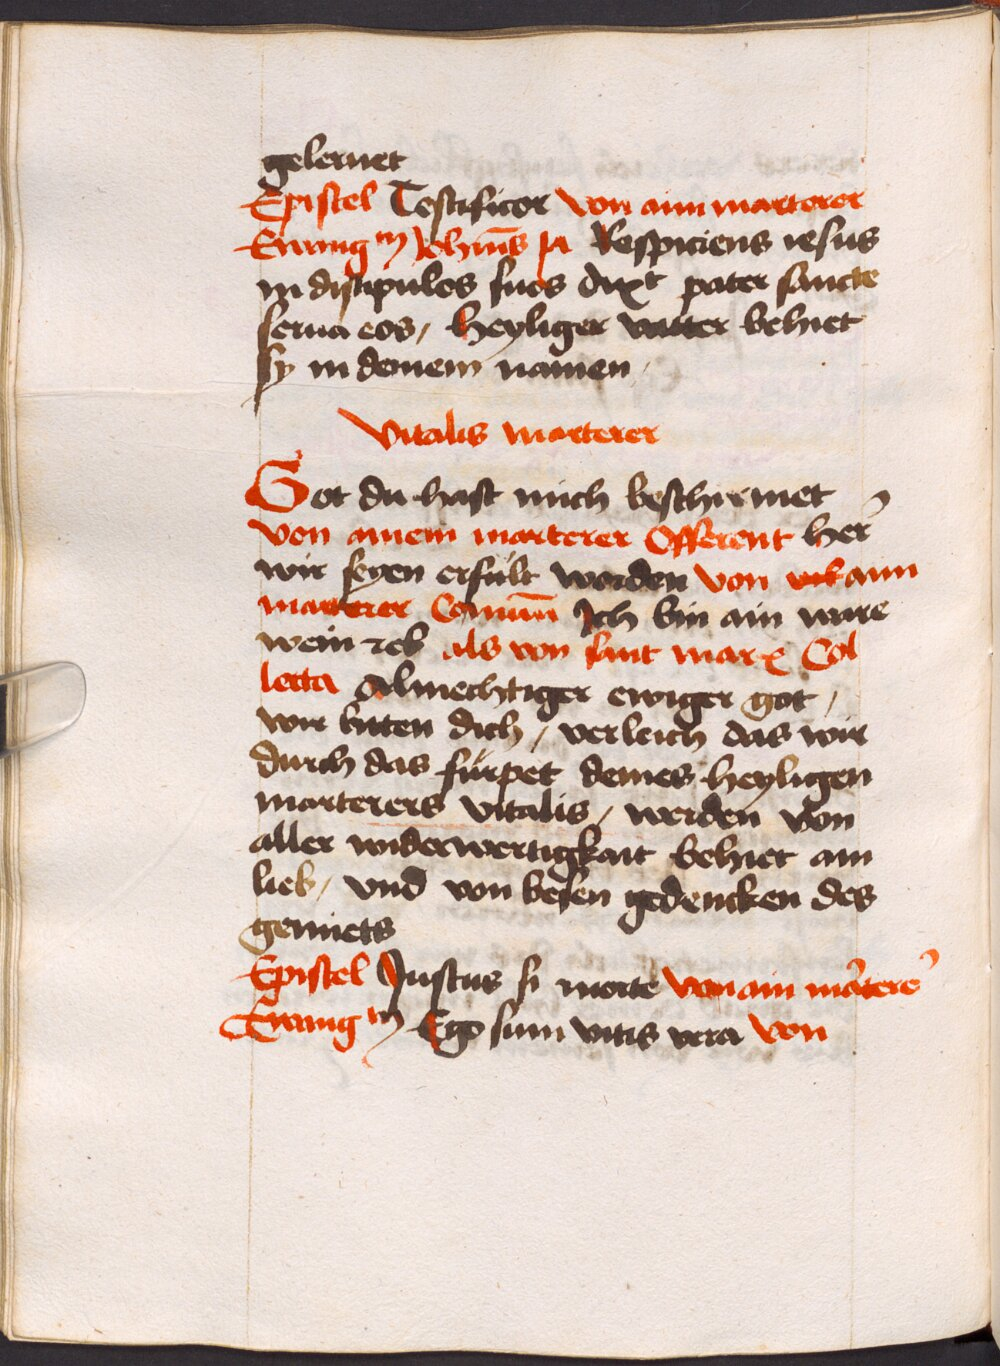 gelernet
Epistel Testificor von aim marterer
Ewangm Johānis Respiciens iesus
in discipulos suos dixt pater sancte
serua eos / heyliger vatter behuet
sy in deinem namen /
Vitalis marterer
Got du hast mich beschirmet
von ainem marterer Offerent her
wir seyen erfült worden von aim
marterer Comun Ich bin ain ware
wein reb als von sant marx Col
lecta Almechtiger ewiger got /
wir biten dich / verleich das wir
durch das fürpet deines heyligen
marterers vitalis / werden von
aller widerwertigkait behuet am
lieb / vnd von bösen gedencken des
gemiets
Epistel Justus si morte von aim marterer
Ewangm Ego sum vitis vera von